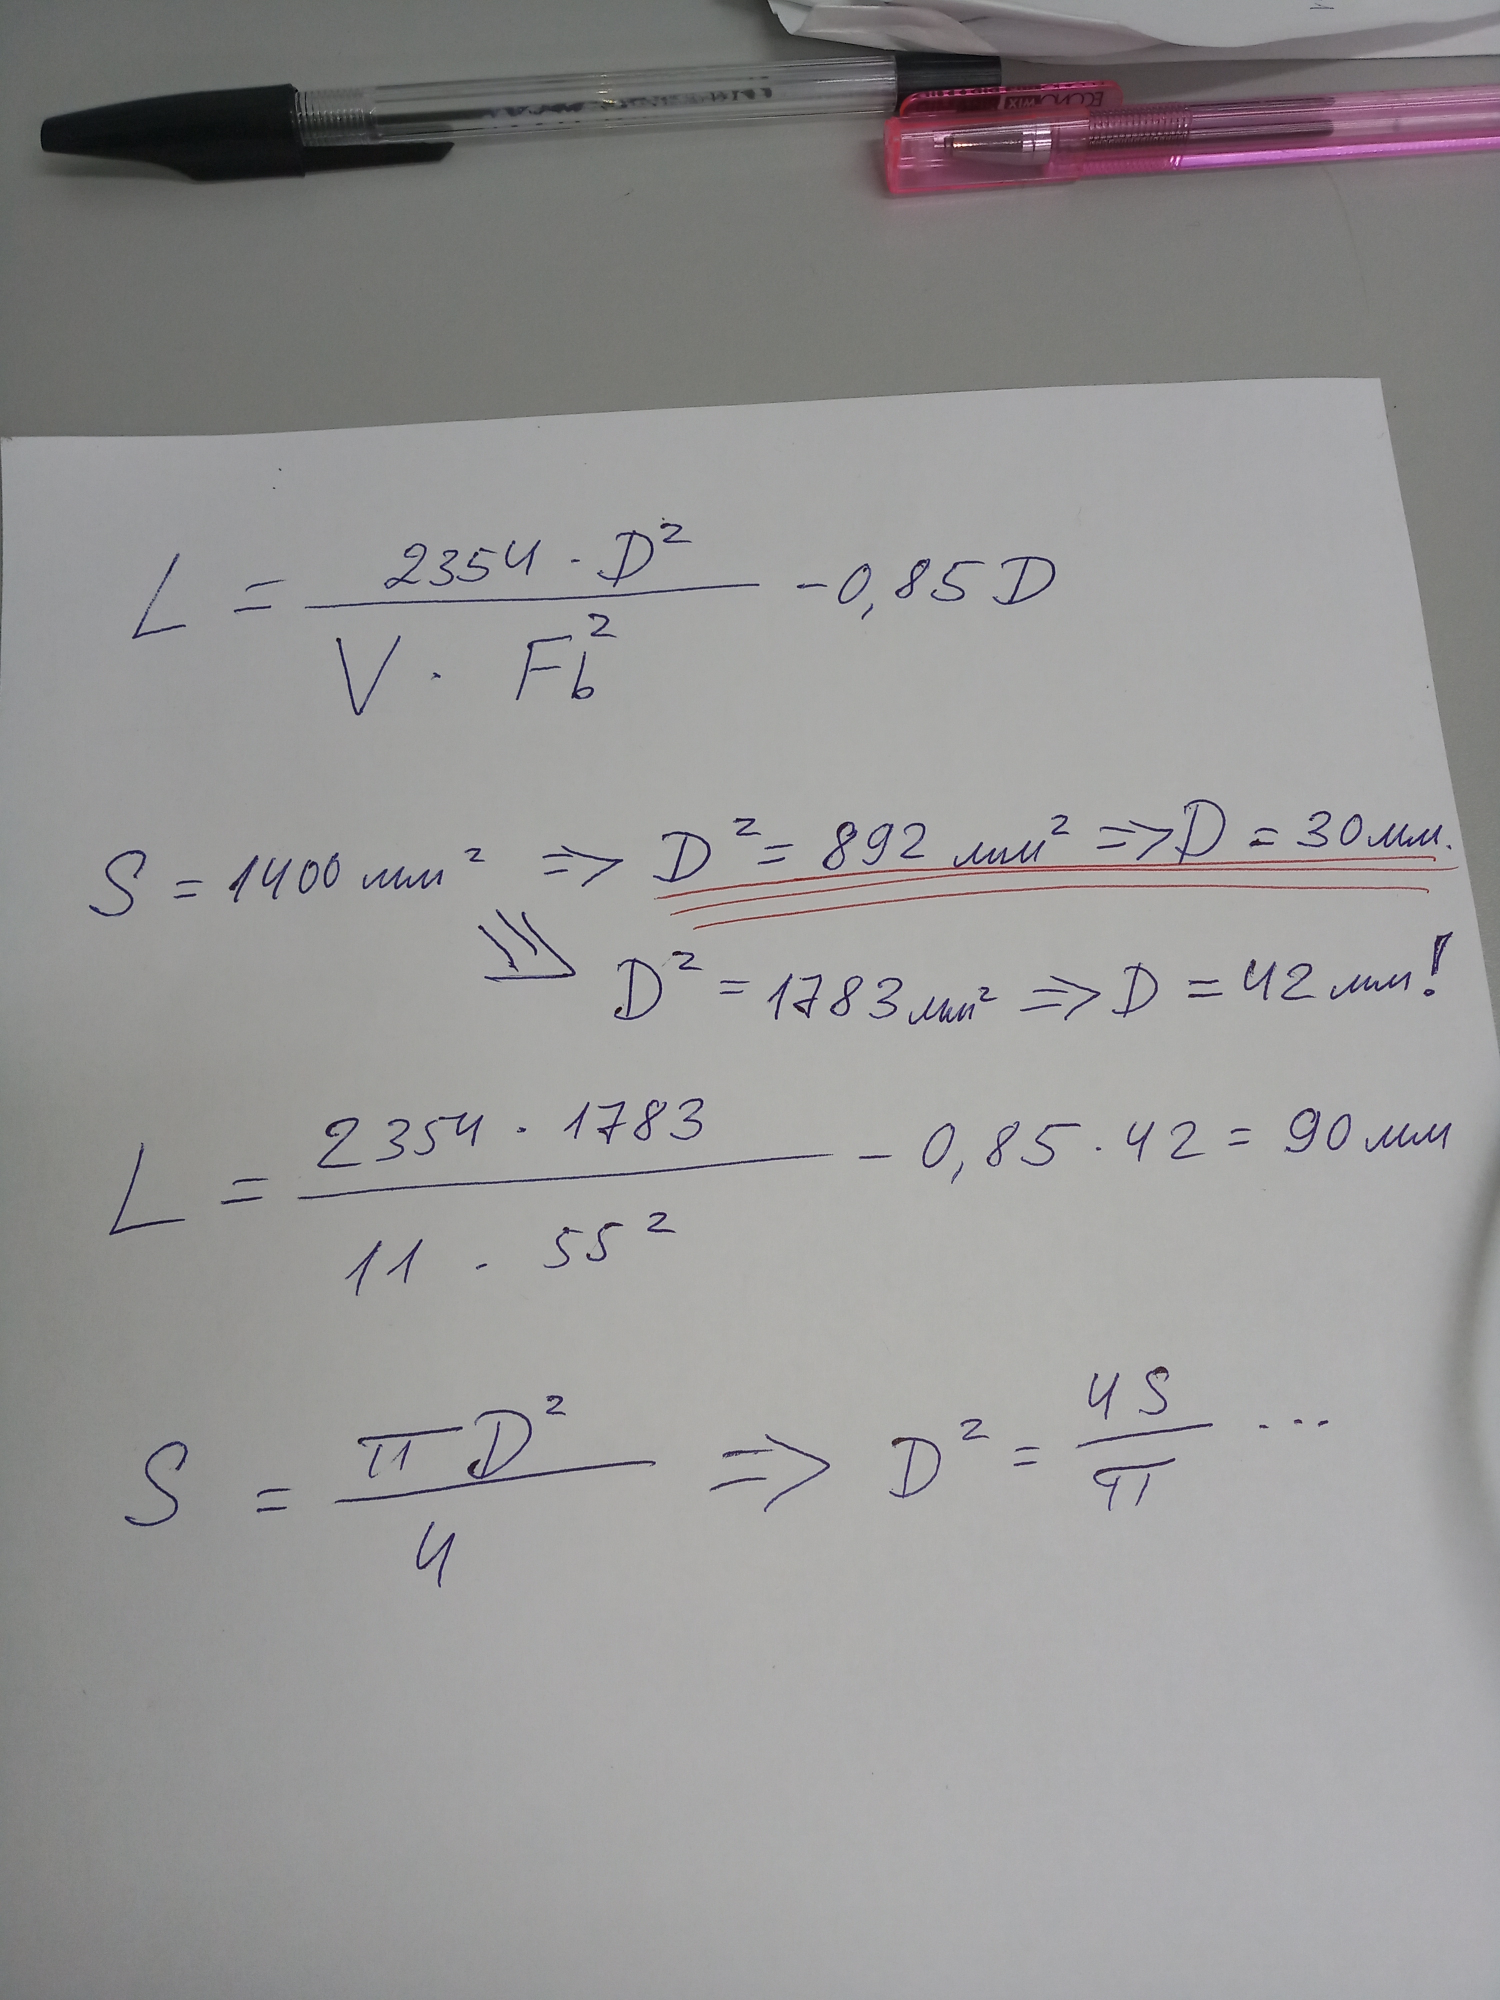 ECONOMIX
L = 2354 · D² / V · Fb² - 0,85 D
S = 1400 мм² => D² = 892 мм² => D = 30 мм.
=> D² = 1783 мм² => D = 42 мм!
L = 2354 · 1783 / 11 · 55² - 0,85 · 42 = 90 мм
S = π D² / 4 => D² = 4S / π ...